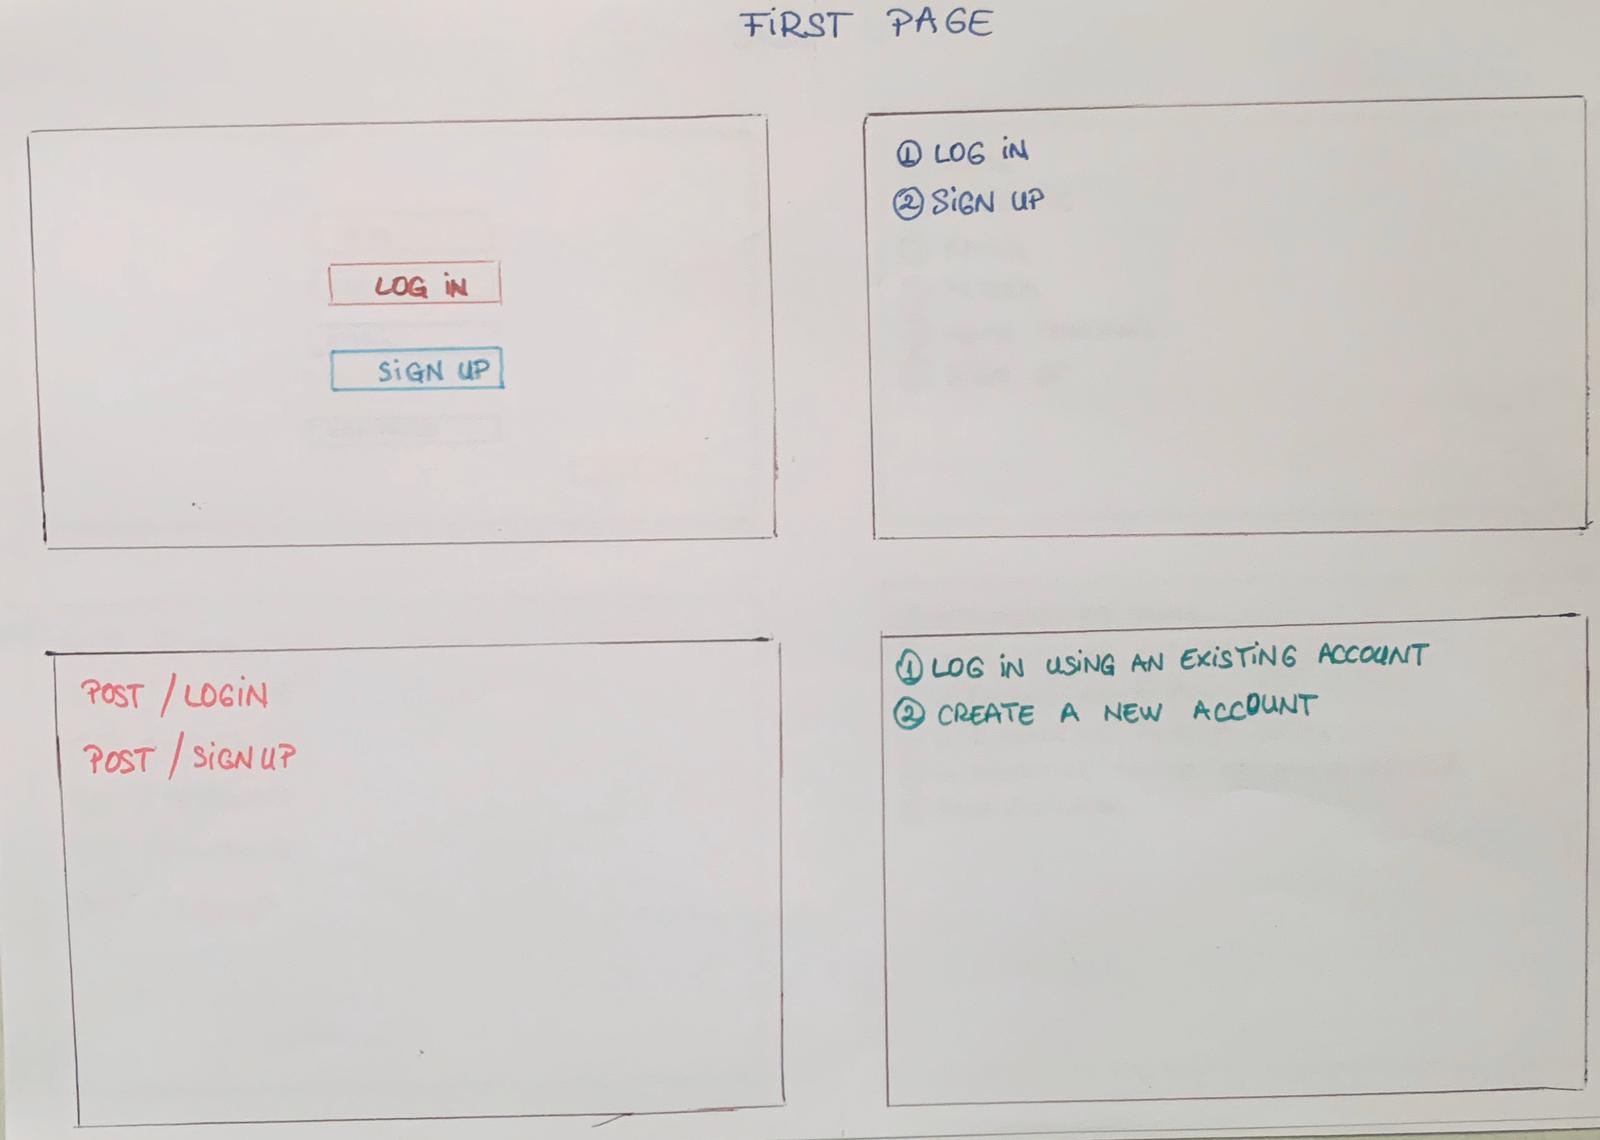 FIRST PAGE
LOG IN
SIGN UP
① LOG IN
② SIGN UP
POST / LOGIN
POST / SIGNUP
① LOG IN USING AN EXISTING ACCOUNT
② CREATE A NEW ACCOUNT